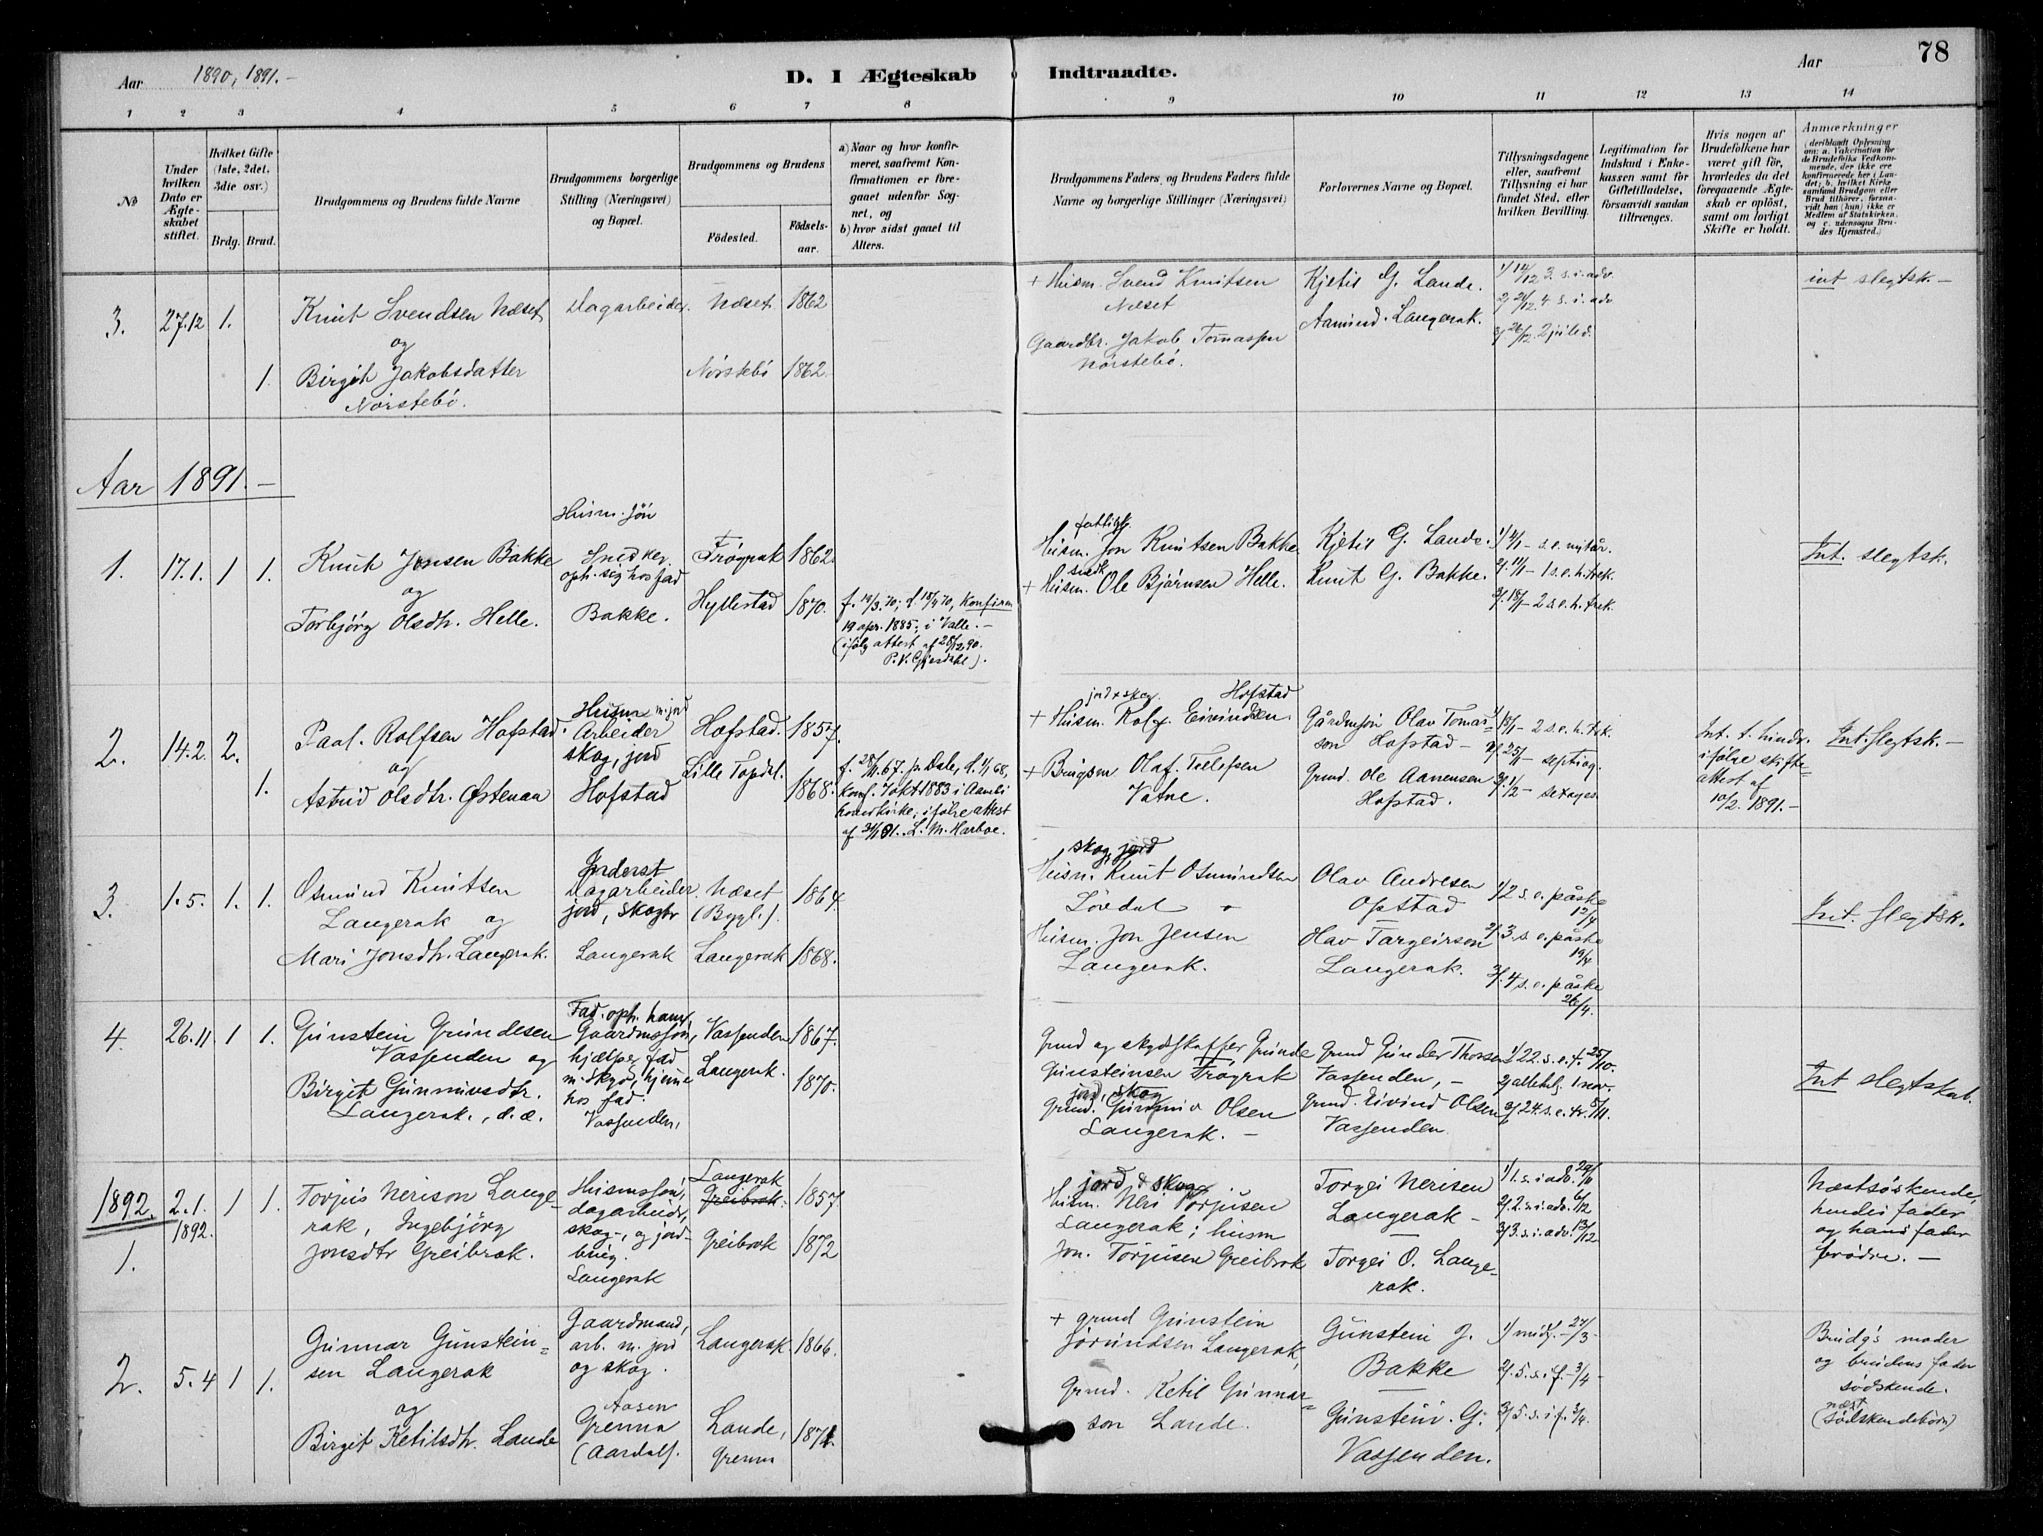 Aar 1890, 1891.-
D. I Ægteskab Indtraadte.
Aar
78
1 2 3 4 5 6 7 8 9 10 11 12 13 14
No
Under hvilken Dato er Ægteskabet stiftet.
Hvilket Gifte (1ste, 2det, 3die osv.)
Brdg. Brud.
Brudgommens og Brudens fulde Navne
Brudgommens borgerlige Stilling (Næringsvei) og Bopæl.
Brudgommens og Brudens
Fødested.
Fødselsaar.
a) Naar og hvor konfirmeret, saafremt Konfirmationen er foregaaet udenfor Sognet, og
b) hvor sidst gaaet til Alters.
Brudgommens Faders, og Brudens Faders fulde Navne og borgerlige Stillinger (Næringsvei)
Forlovernes Navne og Bopæl.
Tillysningsdagene eller, saafremt Tillysning ei har fundet Sted, efter hvilken Bevilling.
Legitimation for Indskud i Enkekassen samt for Giftetilladelse, forsaavidt saadan tiltrænges.
Hvis nogen af Brudefolkene har været gift før, hvorledes da det foregaaende Ægteskab er opløst, samt om lovligt Skifte er holdt.
Anmærkninger (deriblandt Oplysning om: a. Vakcination for de Brudefolks Vedkommende, der ikke ere konfirmerede her i Landet; b. hvilket Kirkesamfund Brudgom eller Brud tilhører, forsaavidt han (hun) ikke er Medlem af Statskirken, og c. udensogns Brudes Hjemsted.)
3. 27.12 1.
Knut Svendsen Næset
og
1. Birgit Jakobsdatter
Nørstebø.
Dagarbeider.
Næset. 1862
Nørstebø 1862.
+ Husm. Svend Knutsen
Næset
Gaardbr. Jakob Tomassen
Nørstebø.
Kjetil G. Lande.
Aamund. Langerak.
1/ 14/12 3. s. i. adv.
2/ 21/12 4 s. i. adv
3/ 26/12 2 juled.
int slegtsk.-
Aar 1891.-
1. 17.1. 1 1.
Knut Jonsen Bakke
og
Torbjørg Olsdtr. Helle.
Husm. søn
Snedker
oph. seg hos fad
Bakke.
Frøyrak 1862.
Hyllestad 1870.
f. 19/3. 70; d. 18/4 70, Konfirm
19 apr. 1885; i Valle.-
(ifølg attest af 28/12 90.
P. V. Gjesdahl).
fattigl.
Husm. Jon Knutsen Bakke
+ Husm. Ole Bjørnsen Helle.
Kjetil G. Lande.
Knut G. Bakke.
1/ 4/1 - s. e. nytår.
2/ 11/1 - 1 s. e. h. trek.
3/ 18/1 - 2 s. e. h. trek.
Int. slegtsk.
2. 14.2. 2.
1.
Paal. Rolfsen Hofstad.
og
Astrid Olsdtr. Østenaa
Husm m. jord
Arbeider
skog, jord
Hofstad
Hofstad. 1857.
Lille Topdal. 1868.
f. 28/11. 67. pr Dale, d. 1/1 68,
konf. 7 okt 1883 i Aamli
hovedkirke; ifølge attest
af 24/1 91. L. M. Harboe.
jord + skog. Hofstad
+ Husm. Rolf. Eivindsen.
+ Brugsm Olaf. Tellefsen
Vatne.
Gårdmsøn Olav Tomasson Hofstad -
Grmd. Ole Aanensen
Hofstad.
1/ 18/1 - 2 s. e. h. trk.
2/ 25/1 - septuag.
3/ 1/2 - sexages.
Int. t. hindr.
ifølge skifteattest af
10/2. 1891.-
Int. slegtsk.-
3. 1.5. 1. 1.
Osmund Knutsen
Langerak og
Mari Jonsdtr. Langerak.
Inderst
Dagarbeider
jord, skogbr
Langerak
Næset
(Bygl.). 1864.
Langerak 1868.
skog, jord
Husm. Knut Osmundsen
Løvdal
Husm. Jon Jensen
Langerak.
Olav Andresen
Opstad
Olav Targeirson
Langerak.
1/ 2 s. e. påske
12/4
2/ 3. s. e. påske
19/4
3/ 4 s. e. påske
26/4.
Int. slegtsk.
4. 26.11. 1 1.
Gunstein Grundesen
Vassenden og
Birgit Gunnuvsdtr.
Langerak., d. æ.
Fad. oph. ham,
Gaardmssøn,
hjælper fad
m. skyds, hjeme
hos fad
Vassenden,
Vassenden 1867.
Langerak. 1870.
Grmd og skydskaffer Grunde
Gunsteinsen Frøyrak
jord, skog
Grmd. Gunnuv Olsen
Langerak. -
Grmd Gunder Thorsen
Vassenden, -
Grmd. Eivind Olsen
Vassenden
1/ 22. s. e. tr. 25/10.
2/ allehelg. 1 nov.
3/ 24. s. e. tr. 5/11.
Int slegtskab.
1892. 2.1. 1 1.
1892.
1.
Torjus Nerison Langerak, Ingebjørg
Jonsdtr Greibrok.
Husmssøn,
dagarbeid,
skog-, og jordbrug.
Langerak
Langerak
Greibrok. 1857
Greibrok 1872
jord, skog
Husm. Neri Torjusen
Langerak; husm
Jon. Torjusen Greibrok
Torgei Nerisen
Langerak -
Torgei O. Langerak.
1/ 1. s. i. adv. 29/11
2/ 2. s. i. adv. 6/12
3/ 3. s. i. adv. 13/12
Næstsøskende,
hendes fader
og hans fader
brødre. -
2. 5.4 1 1.
Gunnar Gunsteinsen Langerak
og
Birgit Ketilsdtr. Lande
Gaardmand,
arb. m. jord
og skog.
Aasen
Grenna
(Aardal).
Langerak. 1866.
Lande,
Grenna 1871
+ grmd Gunstein
Jørundsen Langerak,
Grmd. Ketil Gunnarson Lande.
Gunstein J.
Bakke
Gunstein. G.
Vassenden.
1/ midf. - 27/3 -
2/ 5. s. i f. - 3/4 -
3/ 5. s. i f. 3/4.
Brudg's moder
og brudens fader
sødskende.
næst
(sødskendebørn)